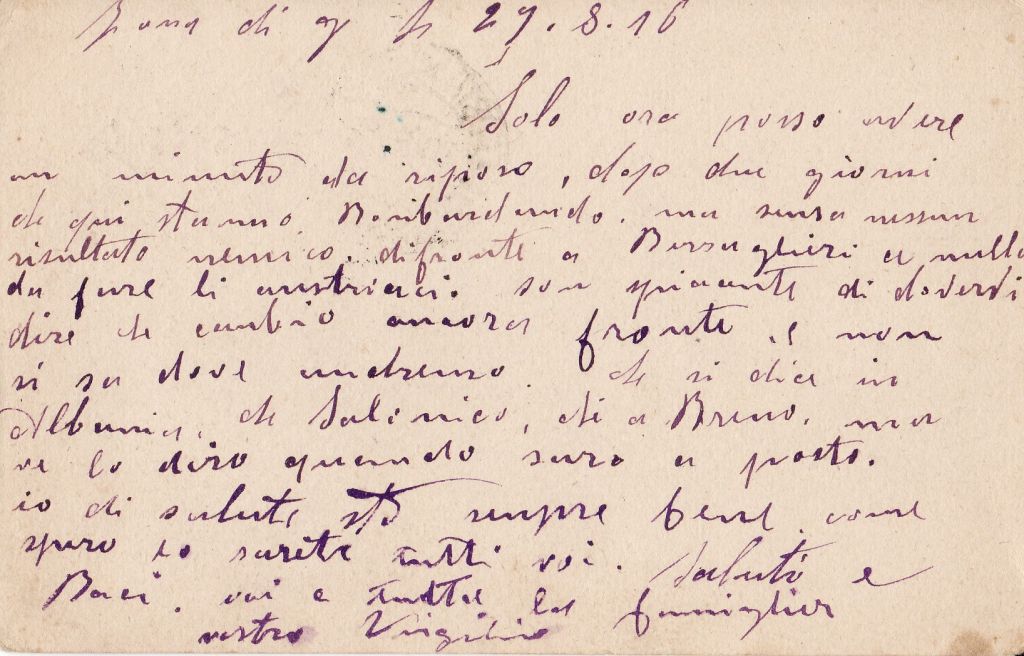 Zona di g 29.8.16
Solo ora posso avere
un minuto da riposo, dopo due giorni
che qui stanno Bonbardando. ma sensa nessun
risultato nemico. difronte a Bersaglieri a nulla
da fare li austriaci. son spiacente di dovervi
dire che cambio ancora fronte, e non
si sa dove andremo. che si dice in
Albania, che Salonico, chi a Breno, ma
ve lo diro quando saro a posto.
io di salute sto sempre bene come
spero lo sarete tutti voi. Saluti e
Baci. voi e tutta la famiglia
vostro Virgilio